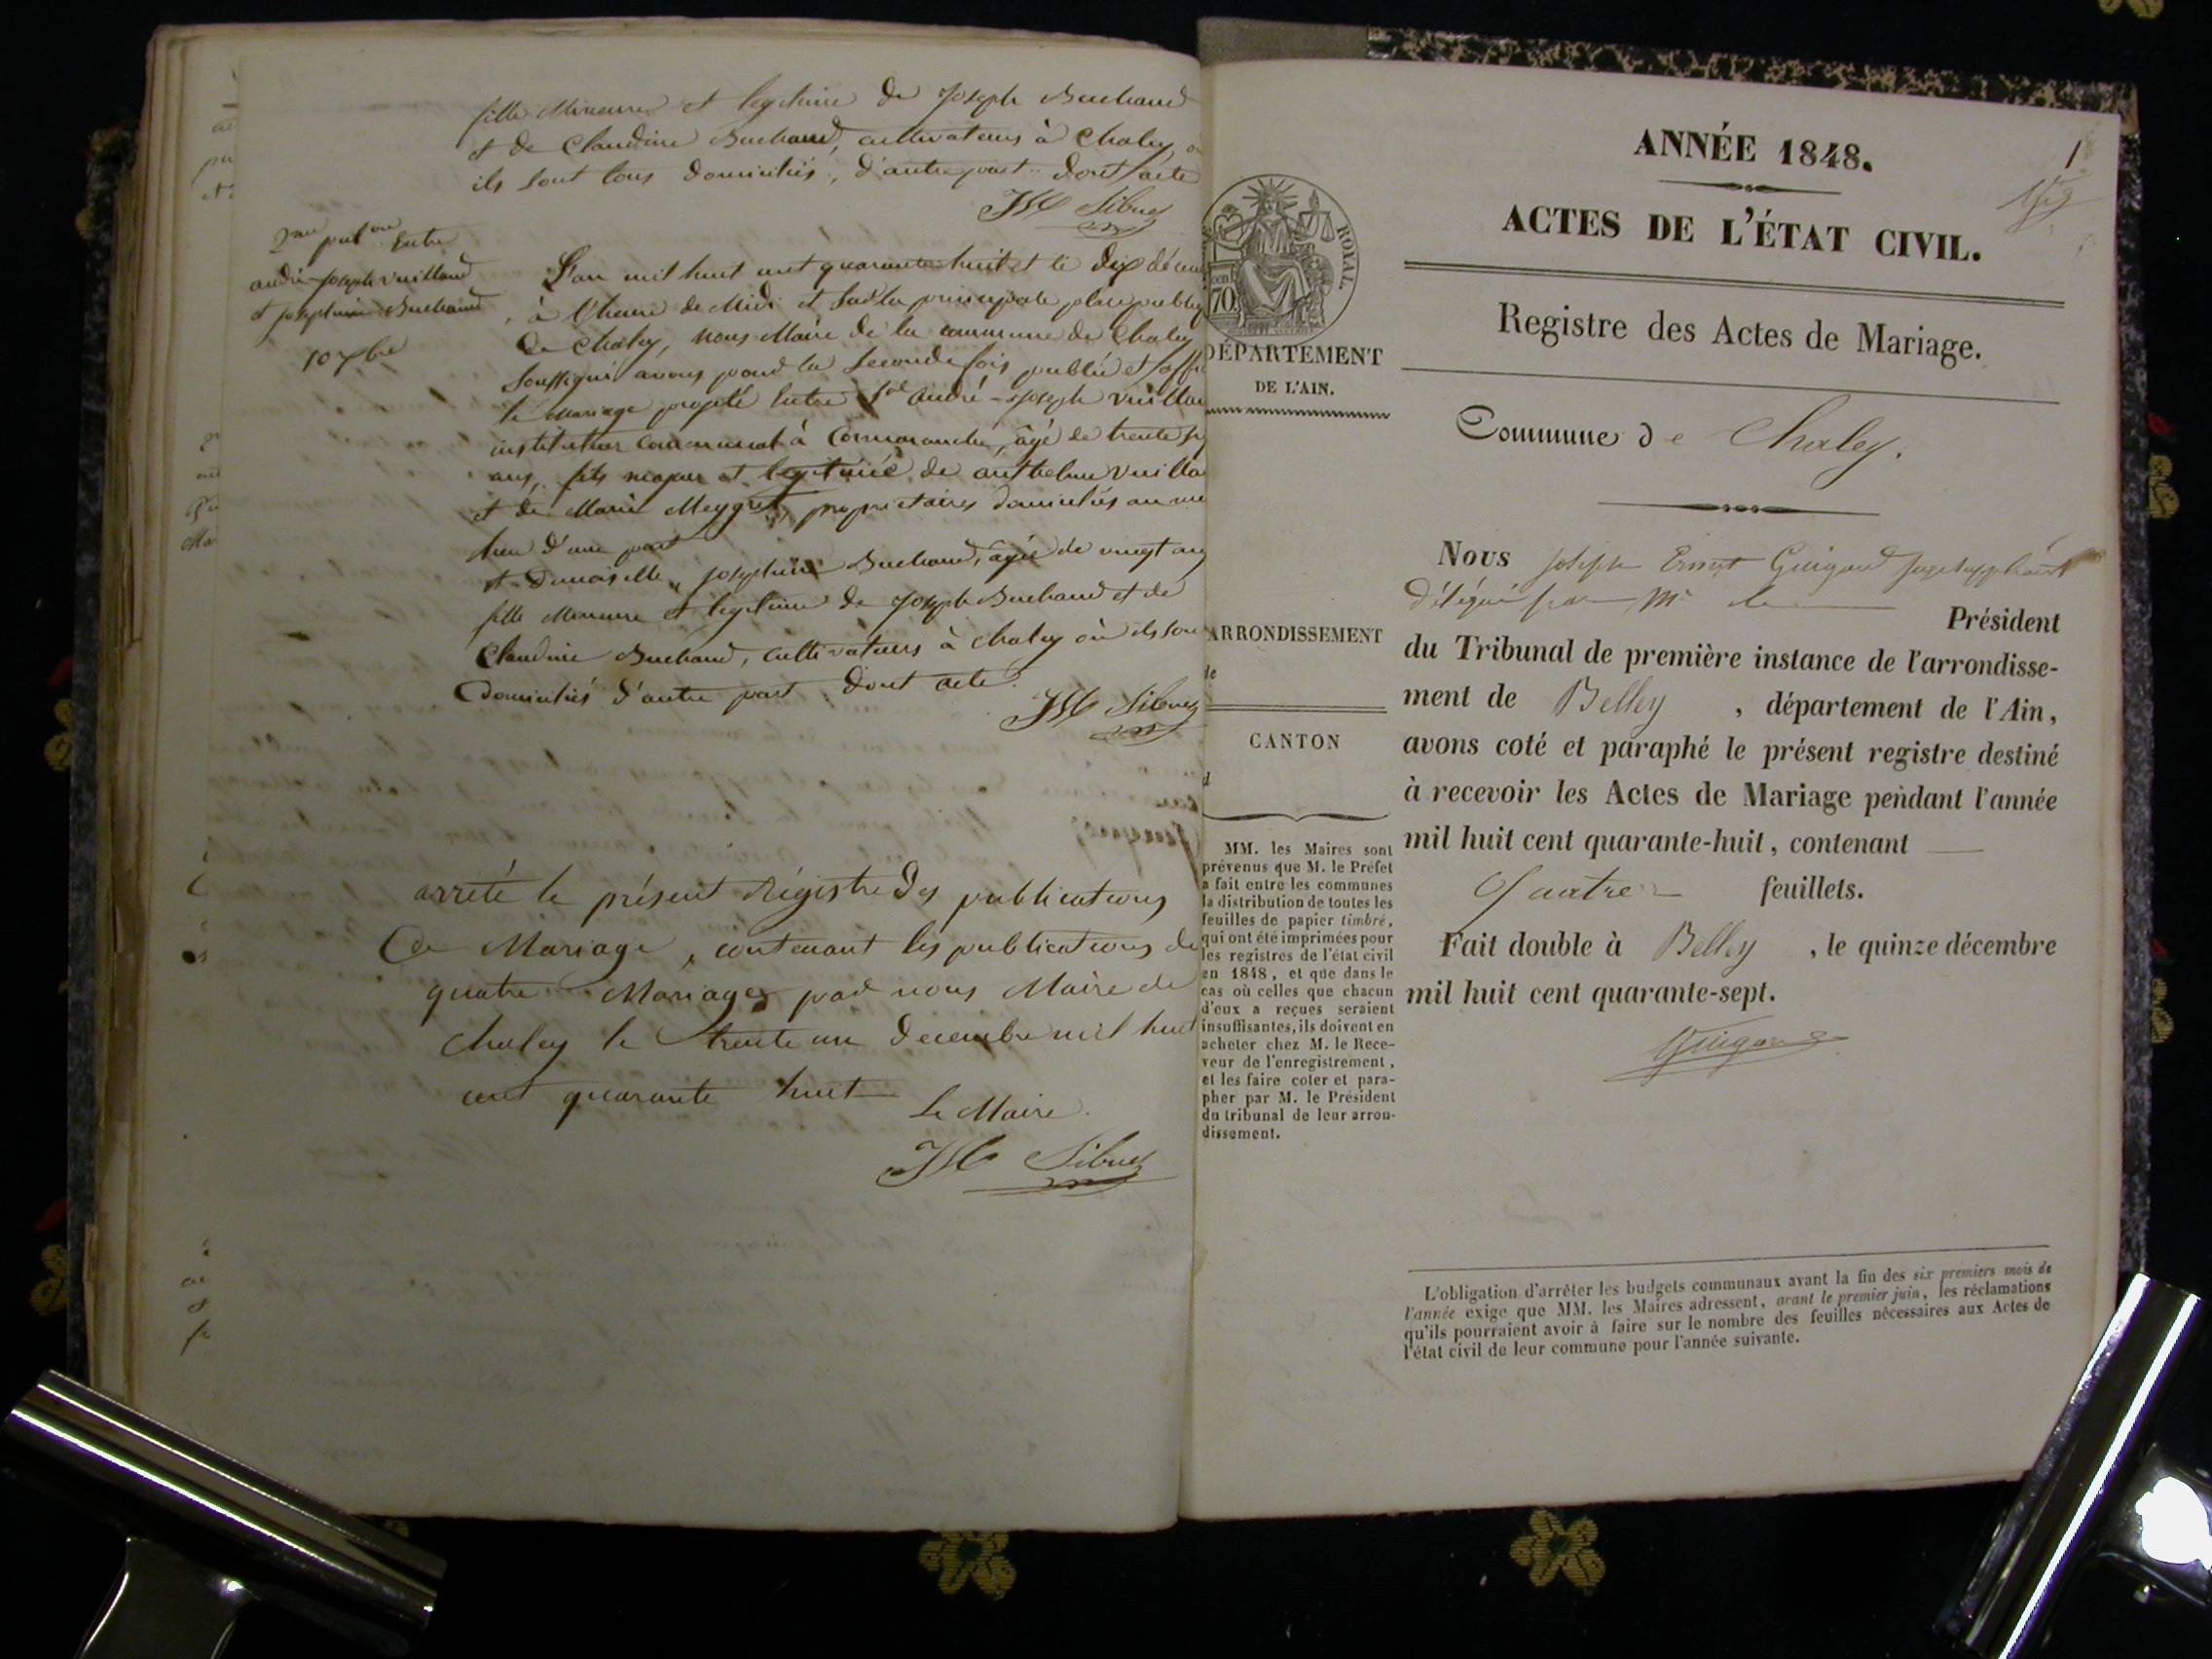 fille Mineure et legitime de Joseph Buchaud
et de Claudine Buchaud, cultivateurs à Chaley, où
ils sont tous domiciliés, d'autre part. dont acte
JM Sibuet
2me pub.on Entre
andré-Joseph Vuillaud
et Josephine Buchaud
10 xbre
L'an mil huit cent quarante-huit et le dix décem
à l'heure de Midi et sur la principale place publiq
De Chaley, nous Maire de la commune de Chaley
soussigné avons pour la seconde fois publié et affi
le Mariage projeté Entre Sr andré-Joseph Vuillau
instituteur communal à Cormaranche, âgé de trente
ans, fils majeur et legitime de anthelme Vuilla
et de Marie Meygret, propriétaires domiciliés au me
lieu d'une part
et Demoiselle Josephine Buchaud, âgée de vingt ans
fille Mineure et legitime de Joseph Buchaud et de
Claudine Buchaud, cultivateurs à Chaley où ils son
Domiciliés d'autre part, dont acte.
JM Sibuet
arrêté le présent Régistre des publications
De Mariage, contenant les publications de
quatre Mariages par nous Maire de
Chaley le trente un Decembre mil huit
cent quarante huit
Le Maire
JM Sibuet
ROYAL.
70
DÉPARTEMENT
DE L'AIN.
ARRONDISSEMENT
de
CANTON
d
MM. les Maires sont
prévenus que M. le Préfet
a fait entre les communes
la distribution de toutes les
feuilles de papier timbré,
qui ont été imprimées pour
les registres de l'état civil
en 1848, et que dans le
cas où celles que chacun
d'eux a reçues seraient
insuffisantes, ils doivent en
acheter chez M. le Rece-
veur de l'enregistrement,
et les faire coter et para-
pher par M. le Président
du tribunal de leur arron-
dissement.
1
ANNÉE 1848.
ACTES DE L'ÉTAT CIVIL.
Registre des Actes de Mariage.
Commune de Chaley.
Nous Joseph Ernest Guigard juge suppléant
Délégué par Mr le Président
du Tribunal de première instance de l'arrondisse-
ment de Belley, département de l'Ain,
avons coté et paraphé le présent registre destiné
à recevoir les Actes de Mariage pendant l'année
mil huit cent quarante-huit, contenant
Quatre feuillets.
Fait double à Belley, le quinze décembre
mil huit cent quarante-sept.
Guigard
L'obligation d'arrêter les budgets communaux avant la fin des six premiers mois de
l'année exige que MM. les Maires adressent, avant le premier juin, les réclamations
qu'ils pourraient avoir à faire sur le nombre des feuilles nécessaires aux Actes de
l'état civil de leur commune pour l'année suivante.